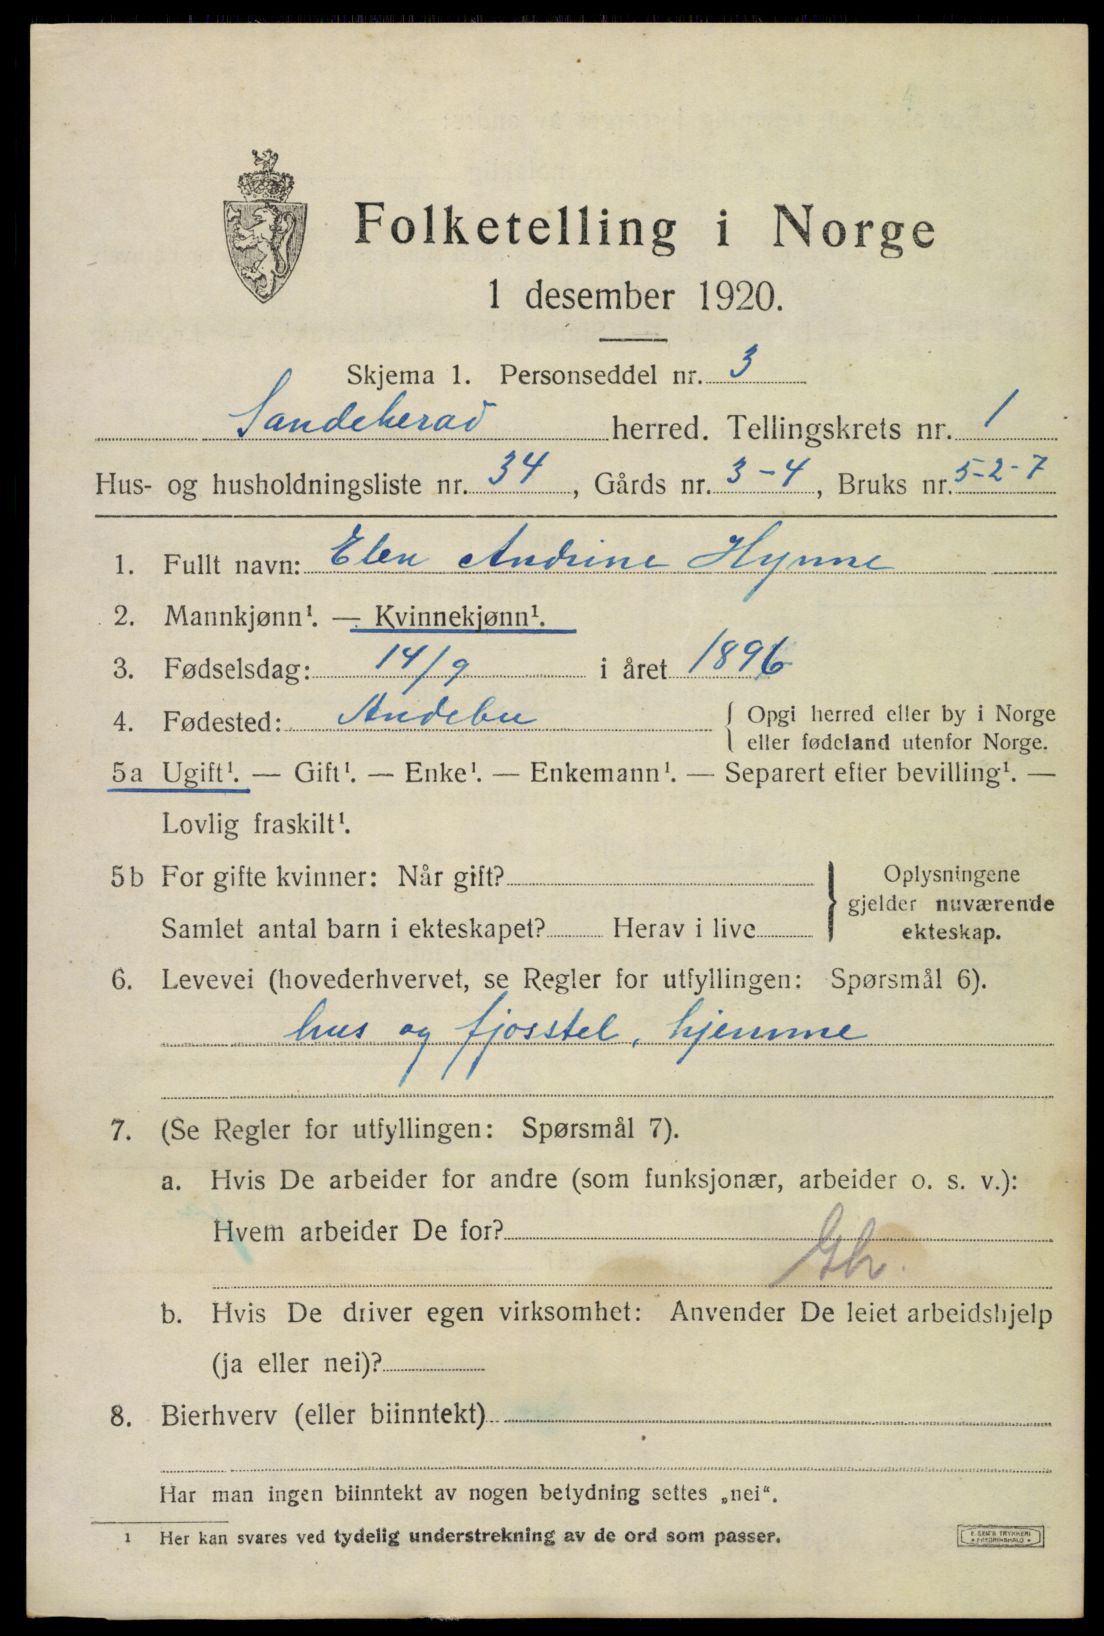 Folketelling i Norge
1 desember 1920.
Skjema 1. Personseddel nr. 3
Sandeherad herred. Tellingskrets nr. 1
Hus- og husholdningsliste nr. 34, Gårds nr. 3-4, Bruks nr. 5-2-7
1. Fullt navn: Elen Andrine Hynne
2. Mannkjønn¹. — Kvinnekjønn¹.
3. Fødselsdag: 14/9 i året 1896
4. Fødested: Andebu { Opgi herred eller by i Norge
eller fødeland utenfor Norge.
5a Ugift¹. — Gift¹. — Enke¹. — Enkemann¹. — Separert efter bevilling¹. —
Lovlig fraskilt¹.
5b For gifte kvinner: Når gift?
Samlet antal barn i ekteskapet? Herav i live
} Oplysningene
gjelder nuværende
ekteskap.
6. Levevei (hovederhvervet, se Regler for utfyllingen: Spørsmål 6).
hus og fjosstel, hjemme
7. (Se Regler for utfyllingen: Spørsmål 7).
a. Hvis De arbeider for andre (som funksjonær, arbeider o. s. v.):
Hvem arbeider De for?
b. Hvis De driver egen virksomhet: Anvender De leiet arbeidshjelp
(ja eller nei)?
8. Bierhverv (eller biinntekt)
Har man ingen biinntekt av nogen betydning settes „nei“.
¹ Her kan svares ved tydelig understrekning av de ord som passer.
E. SEM'S TRYKKERI
FREDRIKSHALD